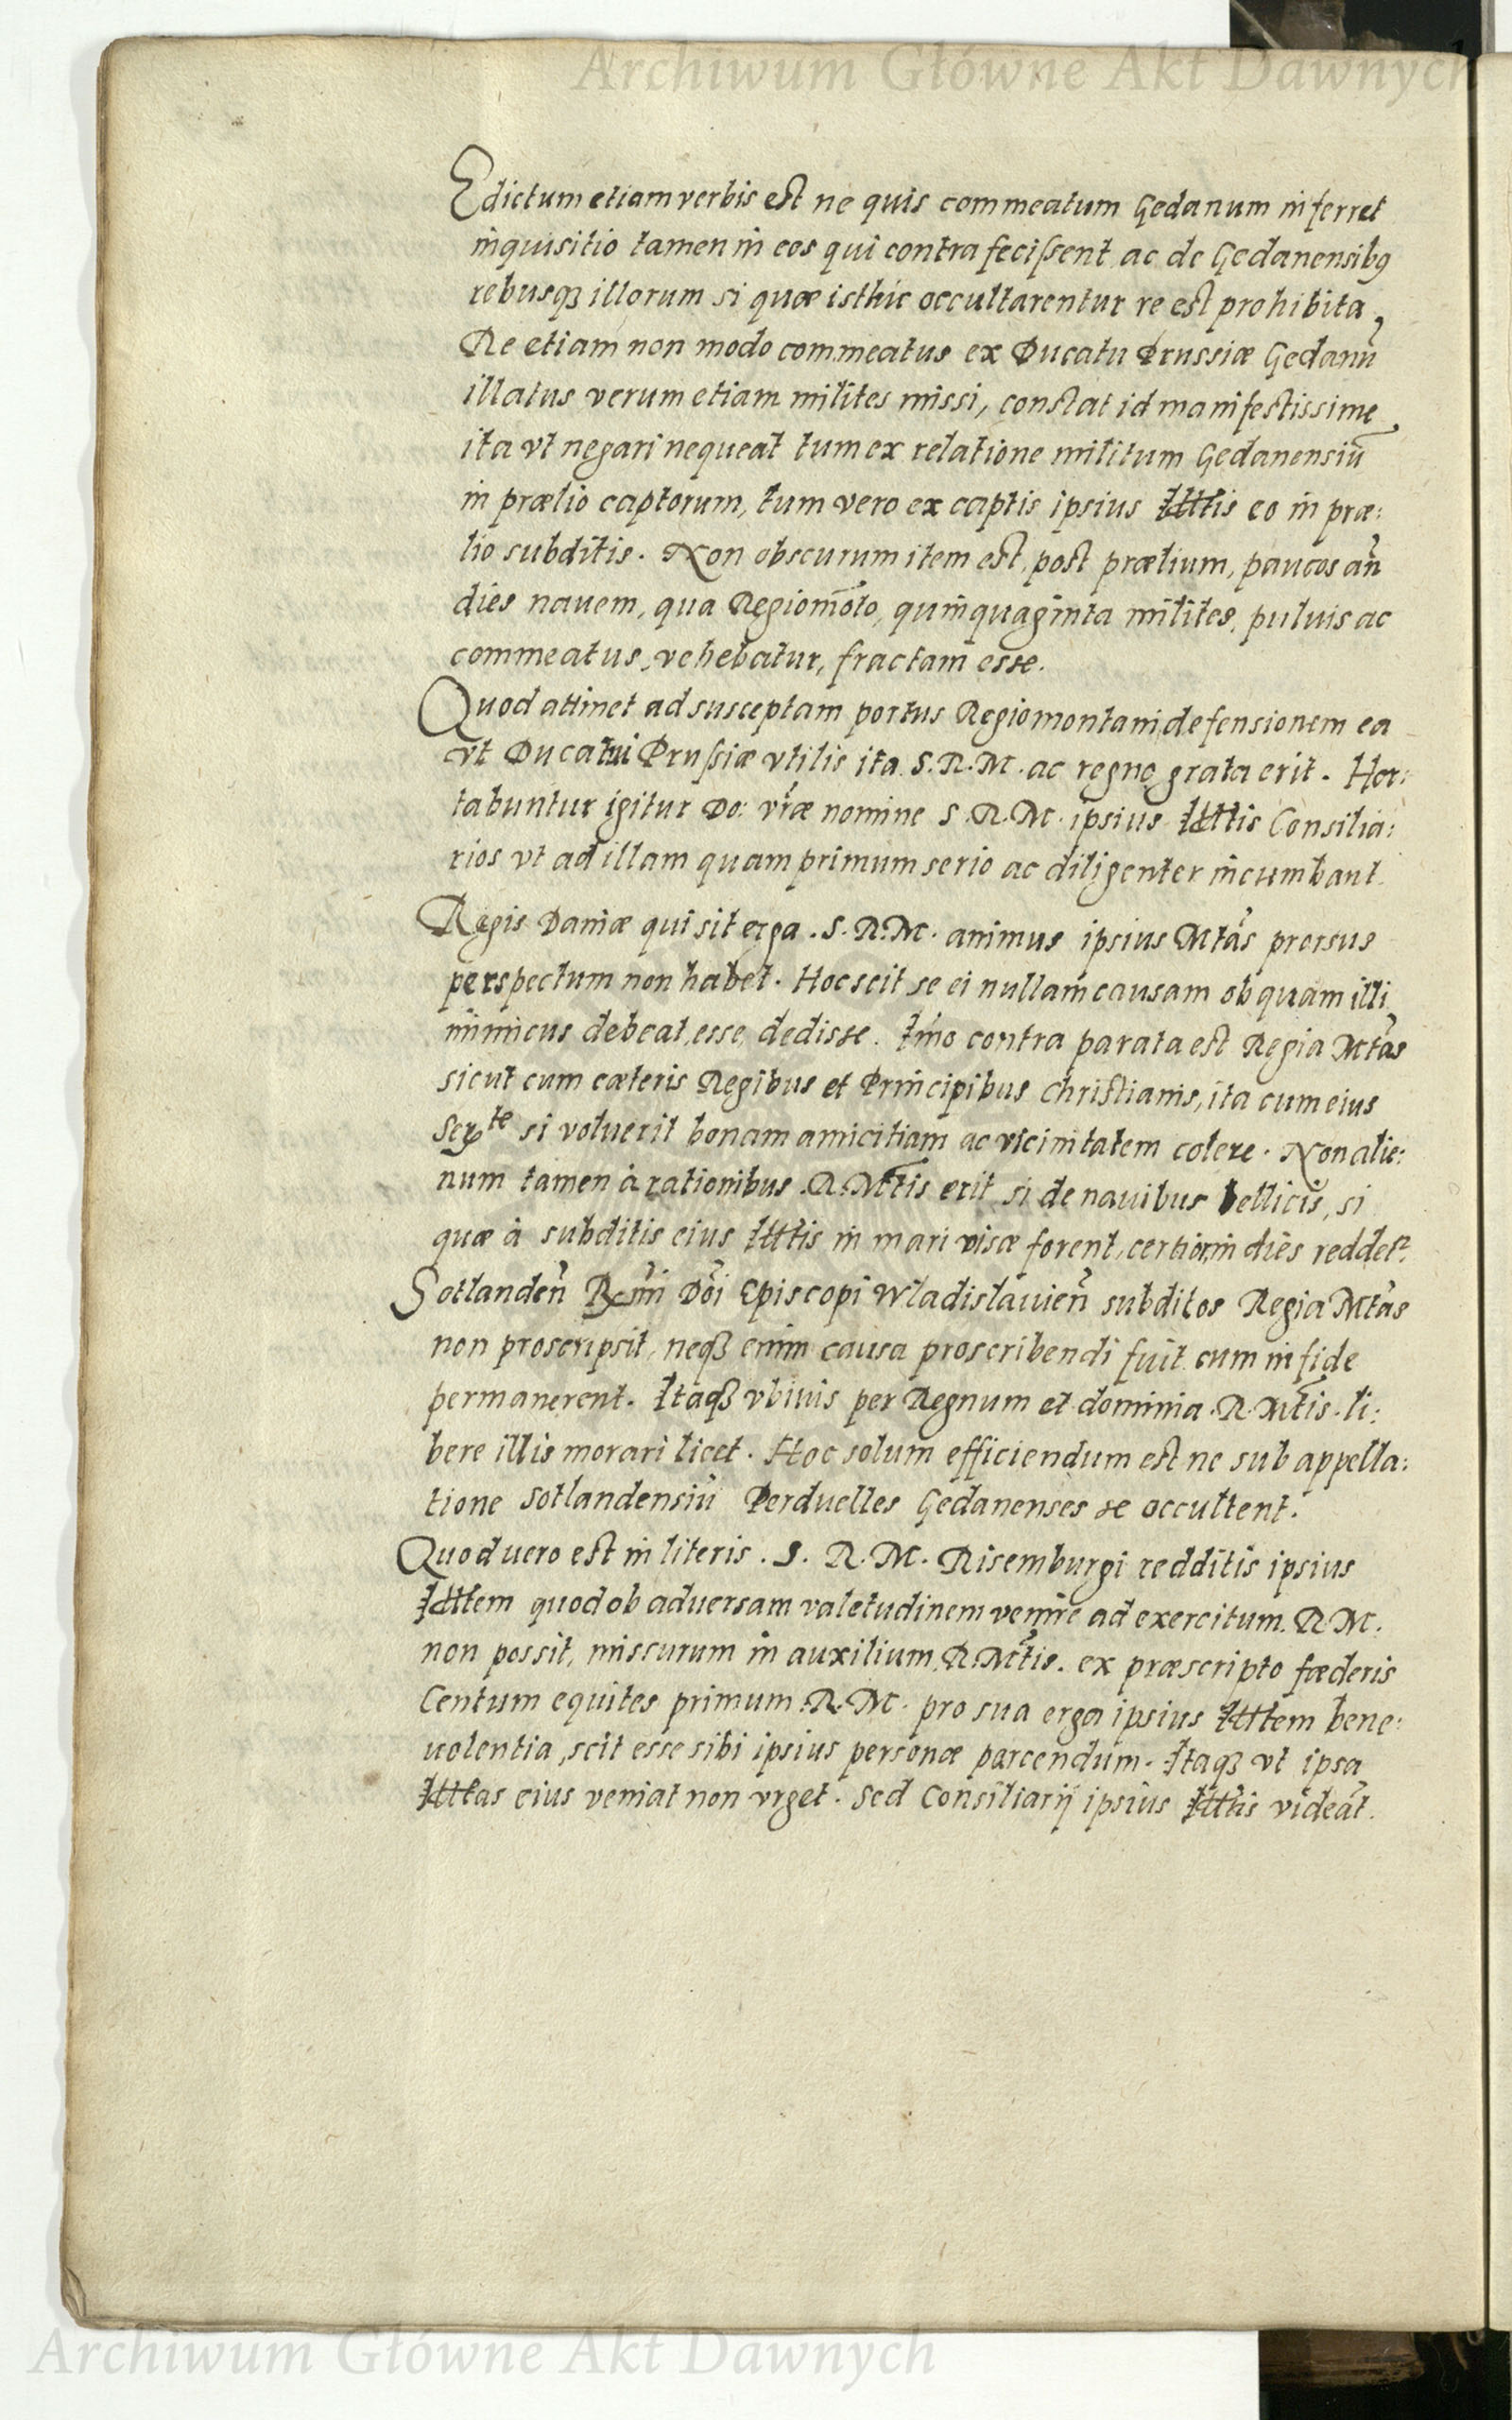 Archiwum Główne Akt Dawnych
Edictum etiam verbis est ne quis commeatum Gedanum inferret
inquisitio tamen in eos qui contra fecissent ac de Gedanensibꝯ
rebusqꝫ illorum si quæ isthic occultarentur re est prohibita.
Re etiam non modo commeatus ex Ducatu Prussiæ Gedanū
illatus verum etiam milites missi, constat id manifestissime
ita vt negari nequeat tum ex relatione militum Gedanensiū
in prælio captorum, tum vero ex captis ipsius Illtis eo in præ:
lio subditis. Non obscurum item est, post prælium, paucos añ
dies nauem, qua Regiomōto, quinquaginta milites, puluis ac
commeatus vehebatur, fractam esse.
Quod attinet ad susceptam portus Regiomontani defensionem ea
vt Ducatui Prussiæ vtilis ita S.R.M. ac regno grata erit. Hor:
tabuntur igitur Do: vr̃æ nomine S.R.M. ipsius Illtis Consilia:
rios vt ad illam quam primum serio ac diligenter incumbant.
Regis Daniæ qui sit erga .S.R.M. animus ipsius Mtas prorsus
perspectum non habet. Hoc scit se ei nullam causam ob quam illi
inimicus debeat esse dedisse. Imo contra parata est Regia Mtas
sicut cum cæteris Regibus et Principibus christianis, ita cum eius
Serte si voluerit bonam amicitiam ac vicinitatem colere. Non alie:
num tamen à rationibus .R.Mtis erit si de nauibus bellicis, si
quæ à subditis eius Illtis in mari visæ forent, certior in diēs reddetr.
Sotlandeñ Rmi Doi Episcopi Wladislauieñ subditos Regia Mtas
non proscripsit, neqꝫ enim causa proscribendi fuit cum in fide
permanerent. Itaqꝫ vbiuis per Regnum et dominia .R.Mtis. li:
bere illis morari licet. Hoc solum efficiendum est ne sub appella:
tione Sotlandensiū Perduelles Gedanenses se occultent.
Quod uero est in literis .S. R. M. Risemburgi redditis ipsius
Illtem quod ob aduersam valetudinem venire ad exercitum R.M.
non possit, missurum in auxilium .R.Mtis. ex præscripto fœderis
Centum equites primum .R.M. pro sua erga ipsius Illtem bene:
uolentia, scit esse sibi ipsius personæ parcendum. Itaqꝫ vt ipsa
Illtas eius veniat non vrget. Sed Consiliarij ipsius Illtis videāt.
Archiwum Główne Akt Dawnych